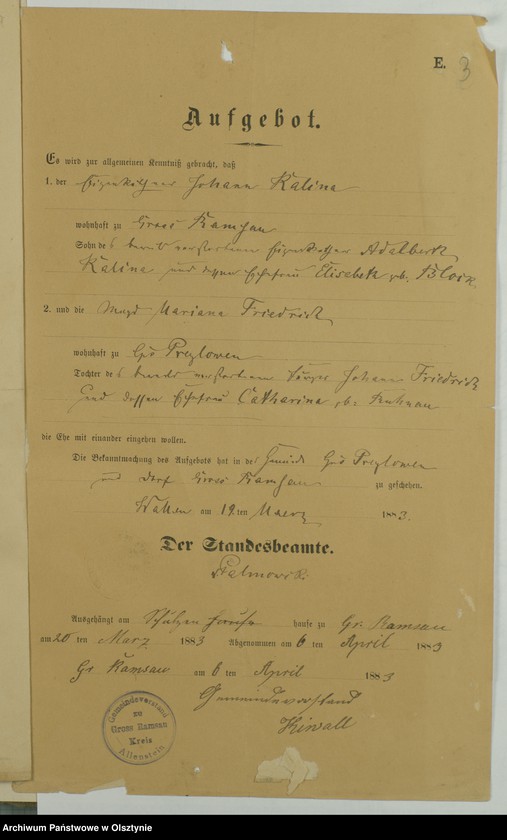 E. 3
Aufgebot.
Es wird zur allgemeinen Kenntniß gebracht, daß
1. der Eigenkäthner Johann Kalina
wohnhaft zu Gross Ramsau
Sohn des bereits verstorbenen Eigenkäthner Adalbert
Kalina und dessen Ehefrau Elisabeth geb. Block.
2. und die Magd Mariana Friedrich
wohnhaft zu Preylowen
Tochter des bereits verstorbenen Johann Friedrich
und dessen Ehefrau Catharina geb.
die Ehe mit einander eingehen wollen.
Die Bekanntmachung des Aufgebots hat in der Gemeinde Preylowen
und Dorf Gross Ramsau zu geschehen.
am 19. ten Maerz 1883.
Der Standesbeamte.
Ausgehängt am hause zu Gr. Ramsau
am 20 ten Marz 1883 Abgenommen am 6 ten April 1883
Gr Ramsau am 6 ten April 1883
Gemeindevorstand
Hiwall
Gemeindevorstand
zu
Gross Ramsau
Kreis
Allenstein
Archiwum Państwowe w Olsztynie